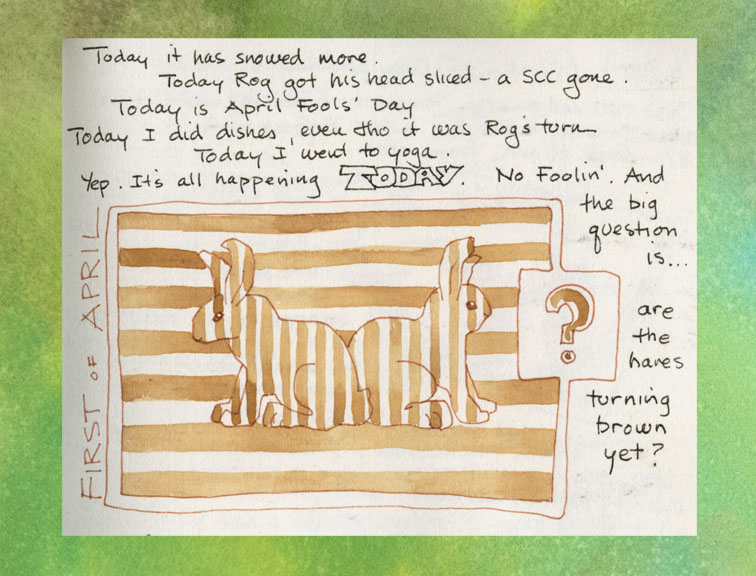 Today it has snowed more.
Today Rog got his head sliced – a SCC gone.
Today is April Fools' Day
Today I did dishes, even tho it was Rog's turn
Today I went to yoga.
Yep. It's all happening TODAY. No Foolin'. And
the big
question
is...
are
the
hares
turning
brown
yet?
?
FIRST OF APRIL